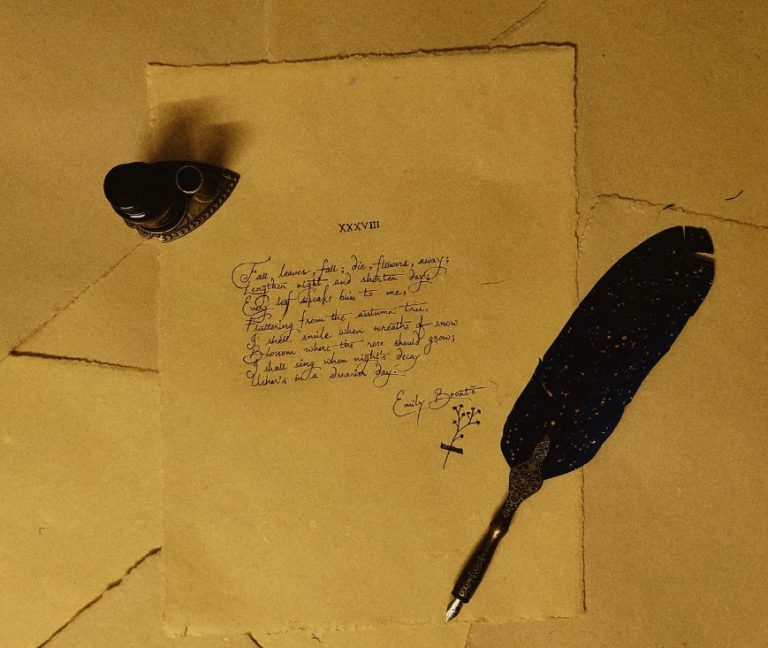 XXXVIII
Fall, leaves, fall; die, flowers, away;
Lengthen night and shorten day;
Every leaf speaks bliss to me,
Fluttering from the autumn tree.
I shall smile when wreaths of snow
Blossom where the rose should grow;
I shall sing when night's decay
Ushers in a drearier day.
Emily Brontë